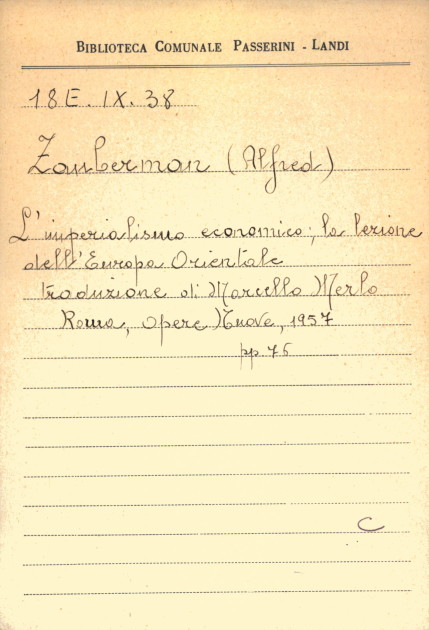 BIBLIOTECA COMUNALE PASSERINI - LANDI
18E. IX. 38
Zauberman (Alfred)
L'imperialismo economico; la lezione
dell'Europa Orientale
traduzione di Marcello Merlo
Roma, Opere Nuove, 1957
pp. 75
C